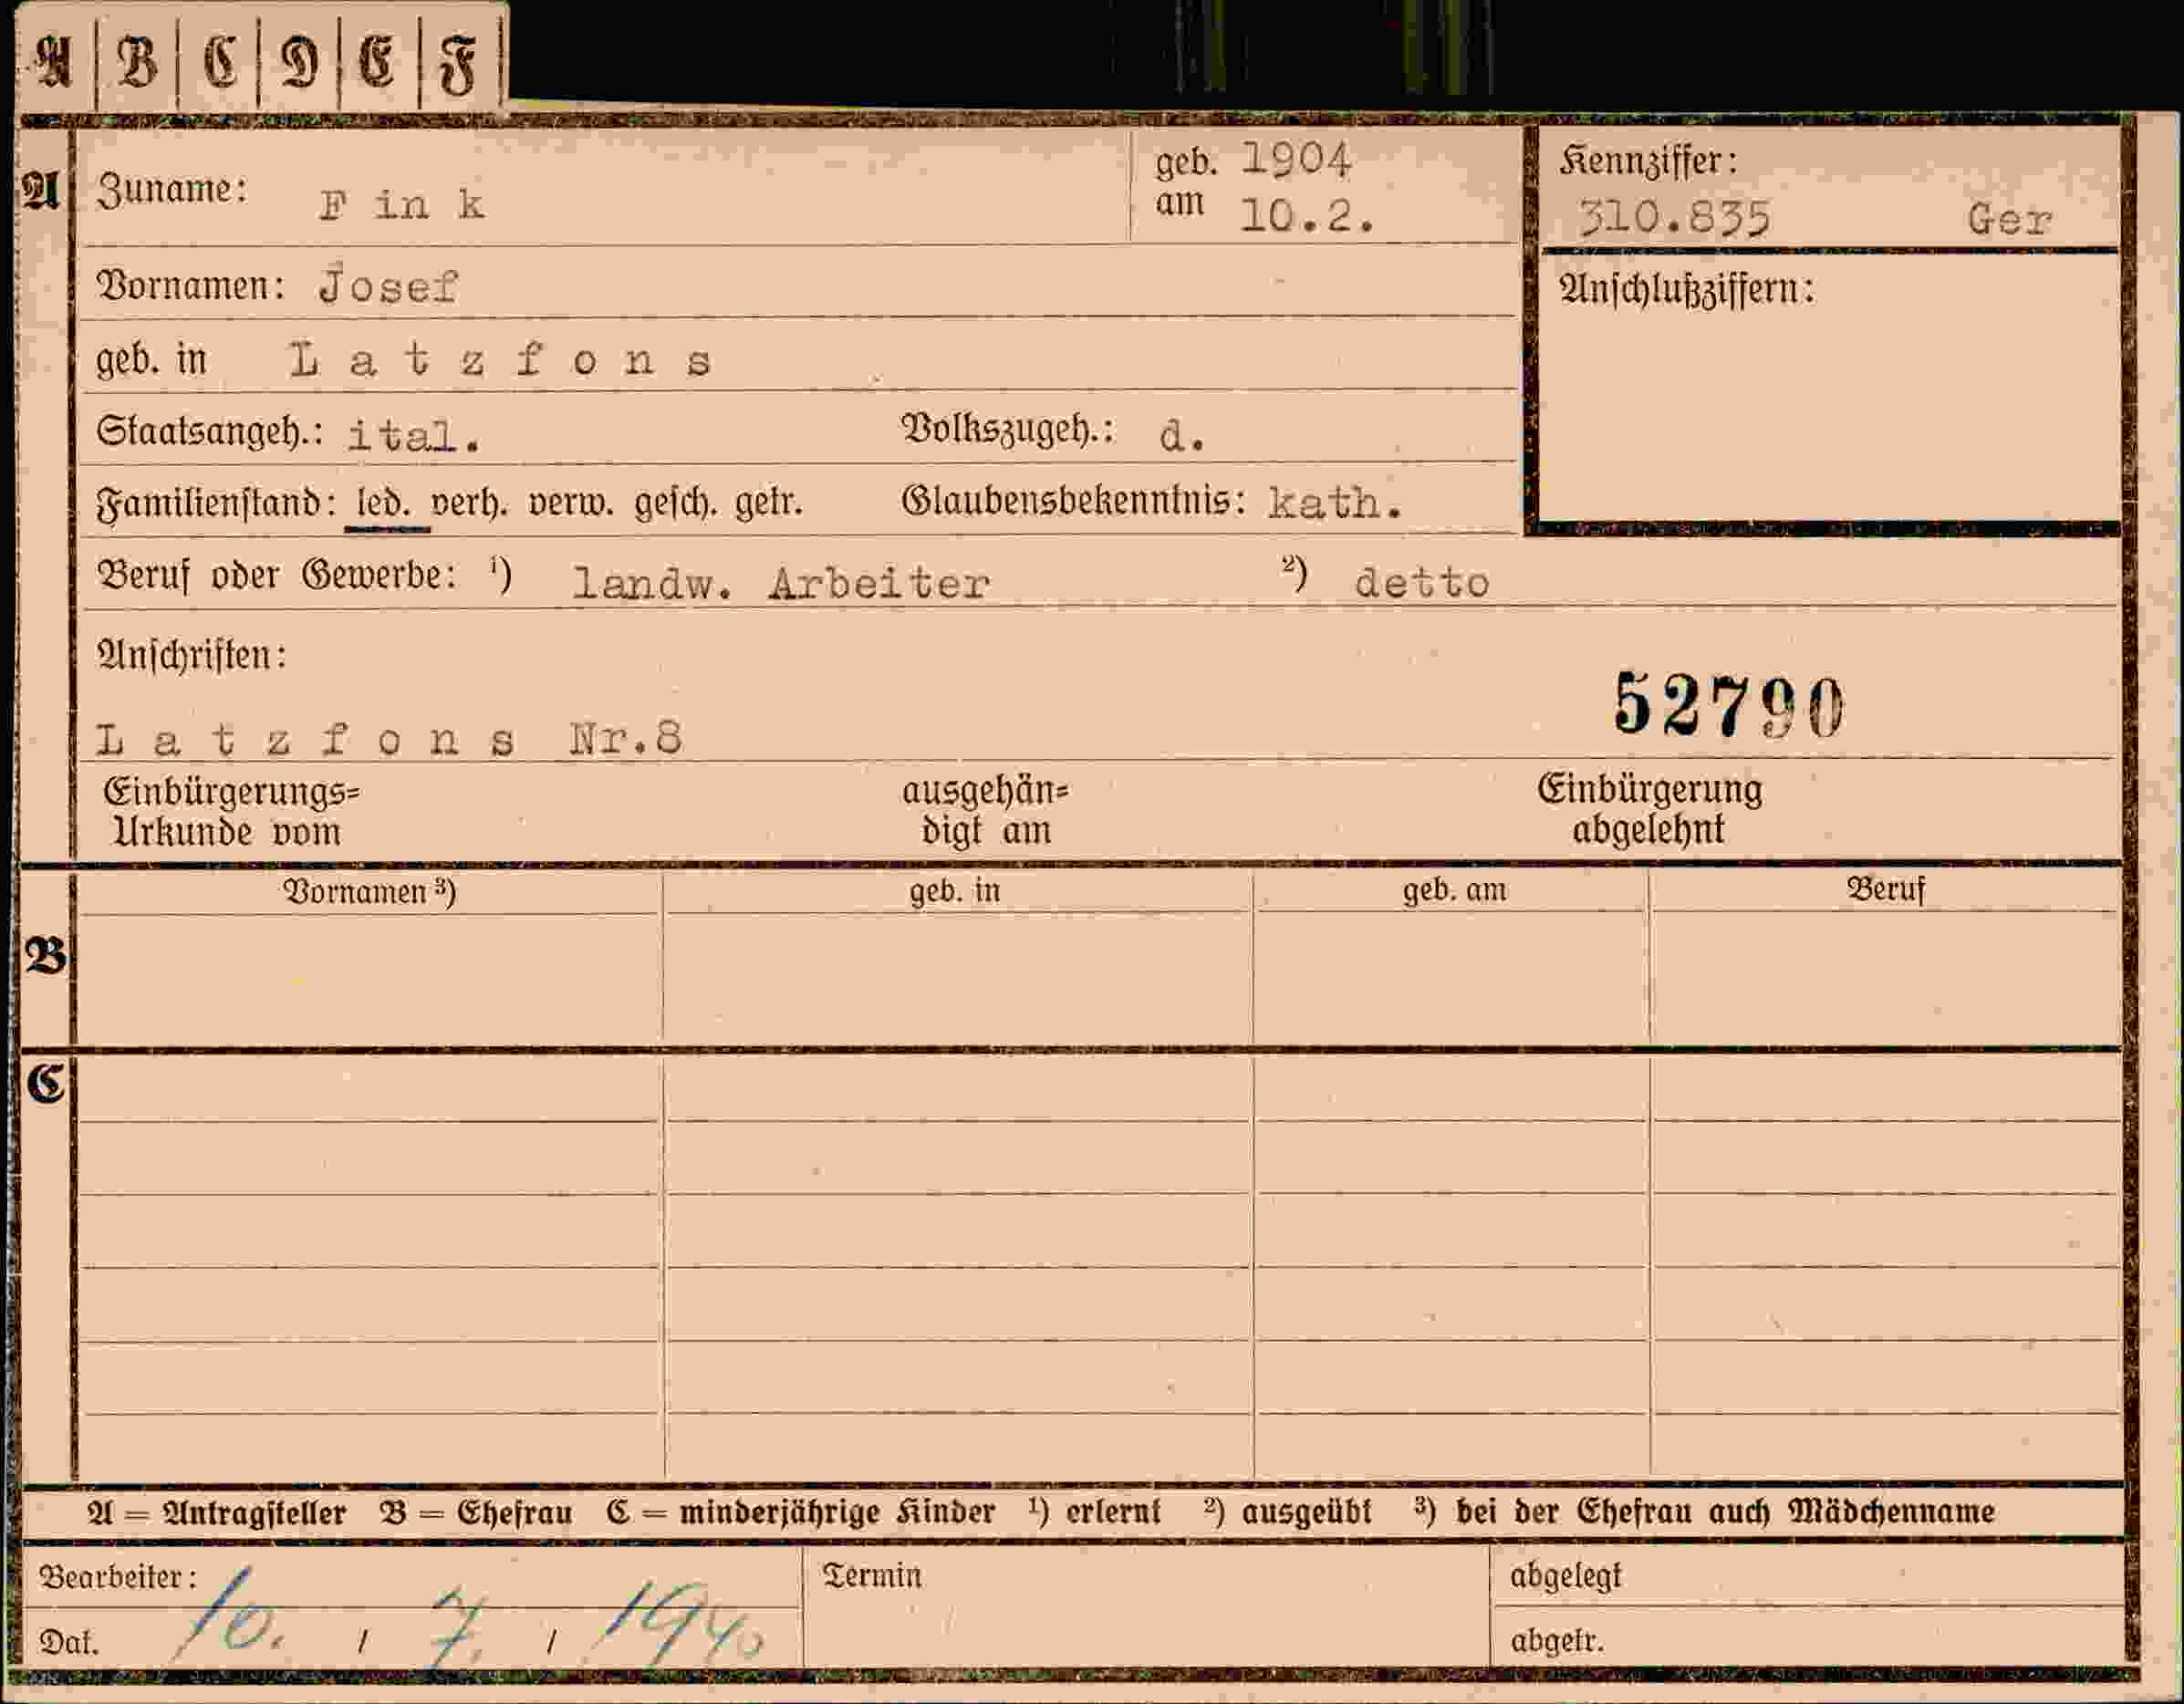 A B C D E F
A Zuname: F in k geb. 1904 am 10.2. Kennziffer: 310.835 Ger
Vornamen: Josef Anschlußziffern:
geb. in L a t z f o n s
Staatsangeh.: ital. Volkszugeh.: d.
Familienstand: led. verh. verw. gesch. getr. Glaubensbekenntnis: kath.
Beruf oder Gewerbe: ¹) landw. Arbeiter ²) detto
Anschriften:
52790
L a t z f o n s Nr.8
Einbürgerungs= ausgehän= Einbürgerung
Urkunde vom digt am abgelehnt
Vornamen ³) geb. in geb. am Beruf
B
C
A = Antragsteller B = Ehefrau C = minderjährige Kinder ¹) erlernt ²) ausgeübt ³) bei der Ehefrau auch Mädchenname
Bearbeiter: Termin abgelegt
Dat. 10. / 7. / 1940 abgetr.